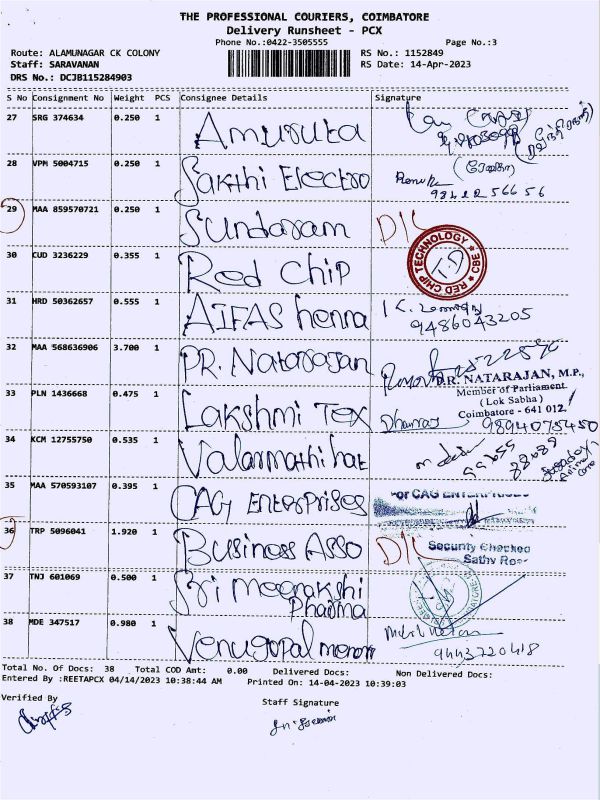 THE PROFESSIONAL COURIERS, COIMBATORE
Delivery Runsheet - PCX
Phone No.:0422-3505555 Page No.:3
Route: ALAMUNAGAR CK COLONY RS No.: 1152849
Staff: SARAVANAN RS Date: 14-Apr-2023
DRS No.: DCJB115284903
S No Consignment No Weight PCS Consignee Details Signature
27 SRG 374634 0.250 1 Amusuta
28 VPM 5004715 0.250 1 Sakthi Electro
29 MAA 859570721 0.250 1 Sundaram D/L
30 CUD 3236229 0.355 1 Red chip RED CHIP TECHNOLOGY CBE
31 HRD 50362657 0.555 1 AIFAS henna 9486043205
32 MAA 568636906 3.700 1 PR. Natarajan
DR. NATARAJAN, M.P.,
Member of Parliament
(Lok Sabha)
Coimbatore - 641 012.
33 PLN 1436668 0.475 1 Lakshmi Tex Dhanraj 9894075450
34 KCM 12755750 0.535 1 Valarmathi hat
35 MAA 570593107 0.395 1 CAG Enterprises For CAG ENTERPRISES
36 TRP 5096041 1.920 1 Business Asso D/L
Security Checked
37 TNJ 601069 0.500 1 Sri Meenakshi
Pharma
38 MDE 347517 0.980 1 Venugopal menon 9443720418
Total No. Of Docs: 38 Total COD Amt: 0.00 Delivered Docs: Non Delivered Docs:
Entered By :REETAPCX 04/14/2023 10:38:44 AM Printed On: 14-04-2023 10:39:03
Verified By Staff Signature